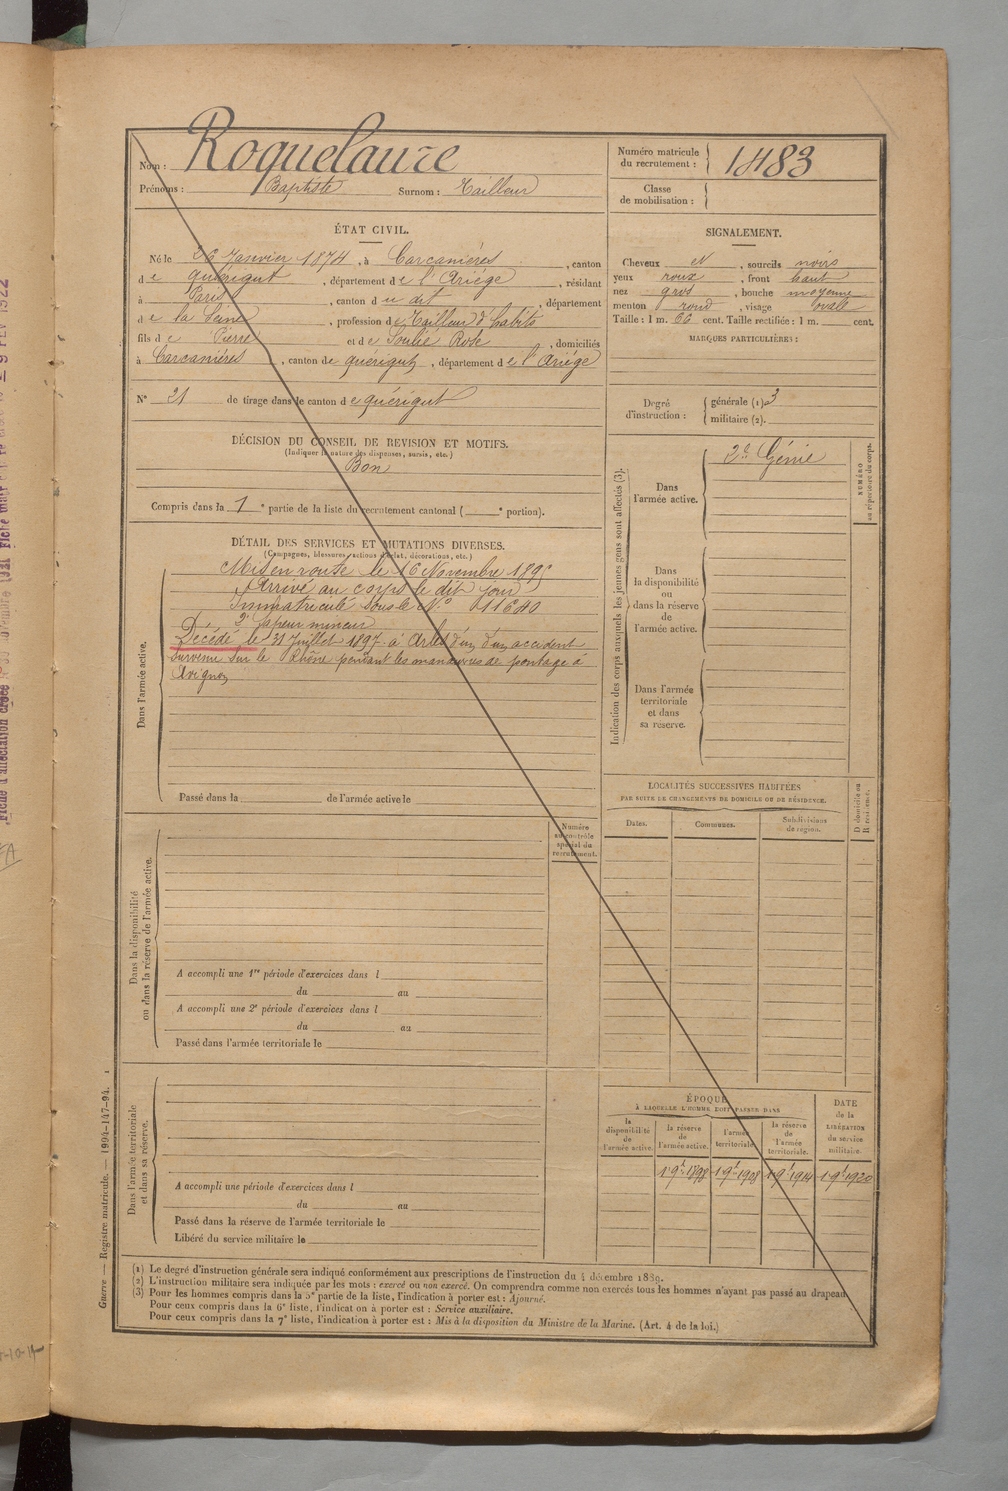 Nom : Roquelaure
Prénoms : Baptiste Surnom : Tailleur
Numéro matricule du recrutement : 1483
Classe de mobilisation :
ÉTAT CIVIL.
Né le 26 Janvier 1874, à Carcanières, canton
de quérigut, département de l'Ariége, résidant
à Paris, canton du dit, département
de la Seine, profession de Tailleur d'habits
fils de Pierre et de Soulié Rose, domiciliés
à Carcanières, canton de quérigut, département de l'Ariége
N° 21 de tirage dans le canton de quérigut
DÉCISION DU CONSEIL DE REVISION ET MOTIFS.
(Indiquer la nature des dispenses, sursis, etc.)
Bon
Compris dans la 1e partie de la liste du recrutement cantonal ( e portion).
SIGNALEMENT.
Cheveux et, sourcils noirs
yeux roux, front haut
nez gros, bouche moyenne
menton rond, visage ovale
Taille : 1 m. 60 cent. Taille rectifiée : 1 m. cent.
MARQUES PARTICULIÈRES :
Degré d'instruction : générale (1) 3
militaire (2).
DÉTAIL DES SERVICES ET MUTATIONS DIVERSES.
(Campagnes, blessures, actions d'éclat, décorations, etc.)
Dans l'armée active.
Mis en route le 16 Novembre 1895
Arrivé au corps le dit jour
Immatriculé sous le N° 11640
2e Sapeur mineur
Décédé le 31 Juillet 1897 à Arles d'un accident
survenu sur le Rhône pendant les manœuvres de pontage à
Avignon
Passé dans la de l'armée active le
Indication des corps auxquels les jeunes gens sont affectés (3).
NUMÉRO au répertoire du corps.
Dans l'armée active.
2e Génie
Dans la disponibilité ou dans la réserve de l'armée active.
Dans l'armée territoriale et dans sa réserve.
LOCALITÉS SUCCESSIVES HABITÉES
PAR SUITE DE CHANGEMENTS DE DOMICILE OU DE RÉSIDENCE.
Dates. Communes. Subdivisions de région.
Numéro au contrôle spécial du recrutement.
Dans la disponibilité ou dans la réserve de l'armée active.
A accompli une 1re période d'exercices dans l
du au
A accompli une 2e période d'exercices dans l
du au
Passé dans l'armée territoriale le
Dans l'armée territoriale et dans sa réserve.
A accompli une période d'exercices dans l
du au
Passé dans la réserve de l'armée territoriale le
Libéré du service militaire le
ÉPOQUE
À LAQUELLE L'HOMME DOIT PASSER DANS
la disponibilité de l'armée active.
la réserve de l'armée active.
l'armée territoriale.
la réserve de l'armée territoriale.
DATE de la LIBÉRATION du service militaire.
1 9bre 1898 1 9bre 1908 1 9bre 1914 1 9bre 1920
(1) Le degré d'instruction générale sera indiqué conformément aux prescriptions de l'instruction du 4 décembre 1889.
(2) L'instruction militaire sera indiquée par les mots : exercé ou non exercé. On comprendra comme non exercés tous les hommes n'ayant pas passé au drapeau.
(3) Pour les hommes compris dans la 5e partie de la liste, l'indication à porter est : Ajourné.
Pour ceux compris dans la 6e liste, l'indication à porter est : Service auxiliaire.
Pour ceux compris dans la 7e liste, l'indication à porter est : Mis à la disposition du Ministre de la Marine. (Art. 4 de la loi.)
Guerre — Registre matricule. — 1994-147-94.